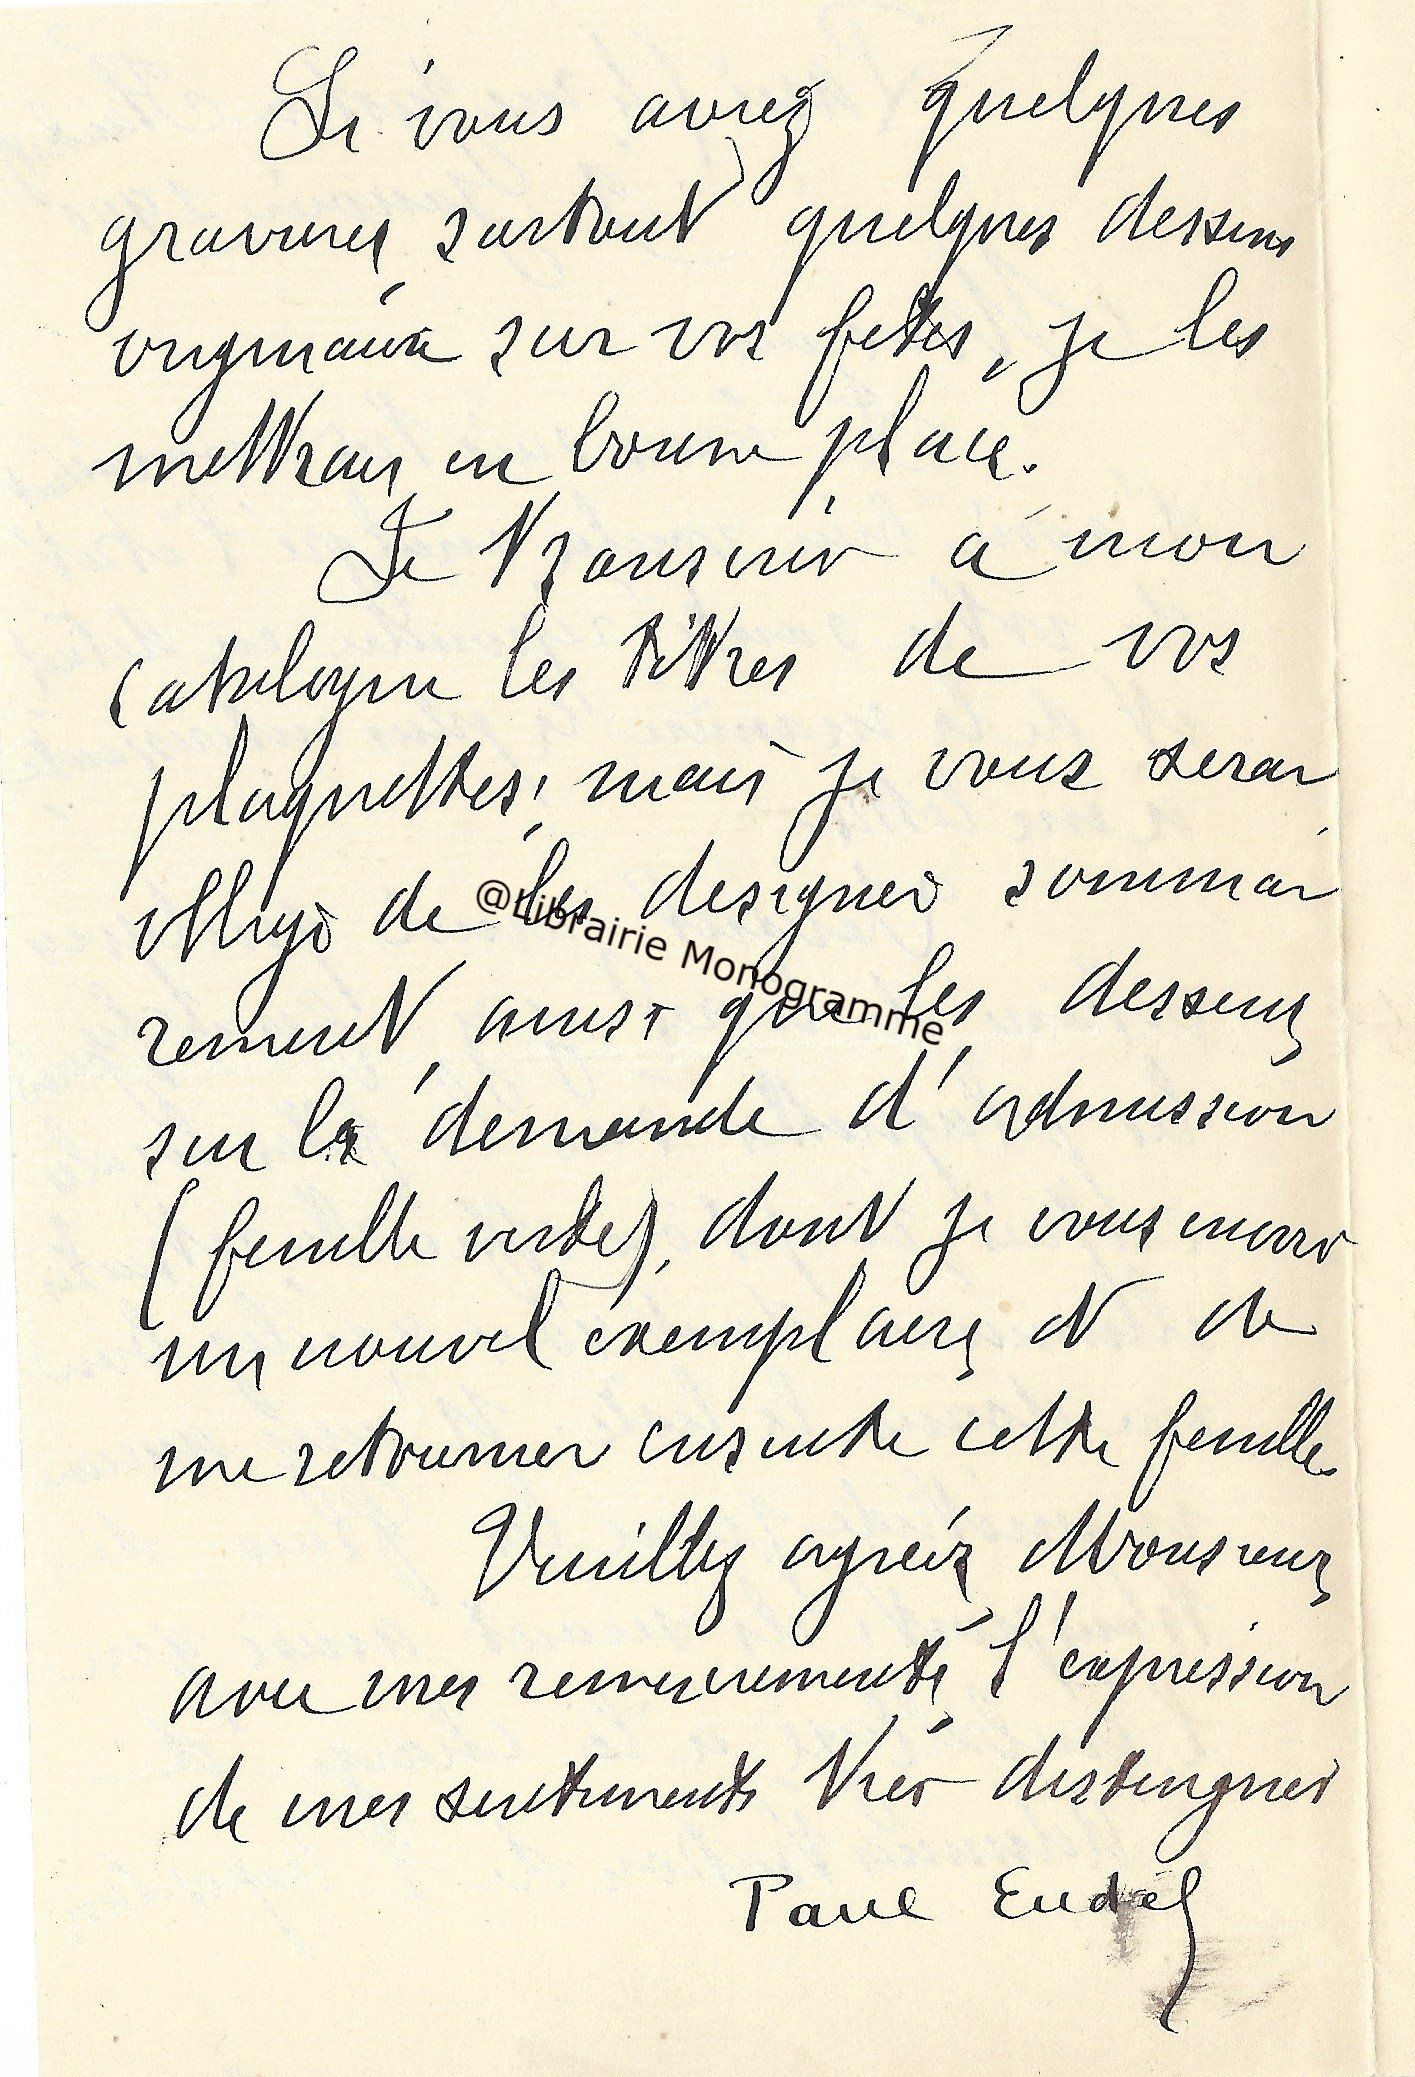 Si vous aviez quelques
gravures, surtout quelques dessins
originaux sur vos fêtes, je les
mettrai en bonne place.
Je transcris à mon
catalogue les titres de vos
plaquettes, mais je vous serai
obligé de les désigner sommai
rement, ainsi que les dessins,
sur la demande d'admission
(feuille verte), dont je vous envoie
un nouvel exemplaire, et de
me retourner ensuite cette feuille.
Veuillez agréer, Monsieur,
avec mes remerciements, l'expression
de mes sentiments très distingués
Paul Eudel
@Librairie Monogramme